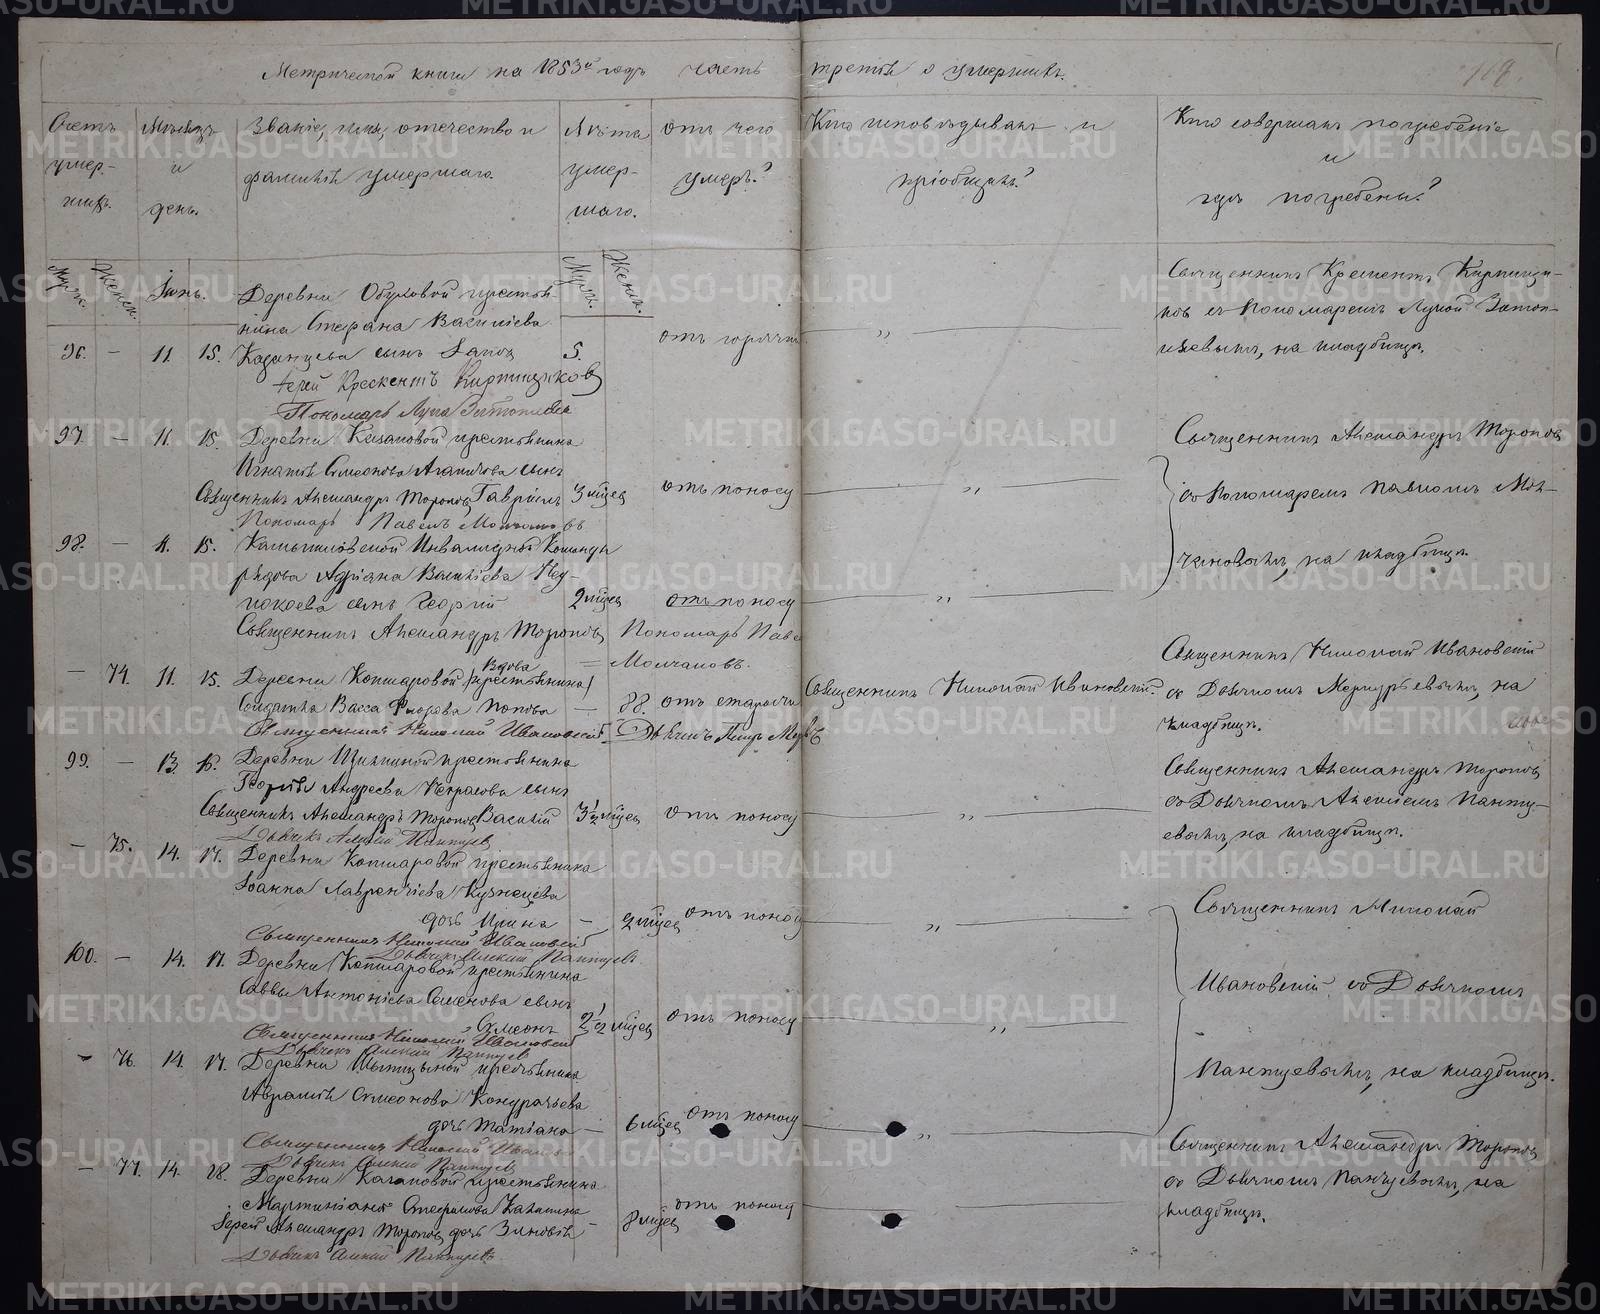 Метрической книги на 1853й годъ часть третія о умершихъ.
118.
Счетъ умер-шихъ.
Мѣсяцъ и день.
Званіе, имя, отечество и фамилія умершаго.
Лѣта умер-шаго.
отъ чего умеръ?
Кто исповѣдывалъ и пріобщалъ?
Кто совершалъ погребеніе и гдѣ погребены?
Муж. Женск. Іюнь. Муж. Женск.
Деревни Обуховой крестья-
нина Стефана Василіева
96. — 11. 15. Казанцева сынъ 5. отъ горячки „
Іерей Крескентъ Кирпищиковъ
Пономарь Лука
Священникъ Крескентъ Кирпищи-
ковъ съ Пономаремъ Лукой
на кладбищѣ.
97. — 11. 15. Деревни крестьянина
Игнатія Симеонова сынъ
Священникъ Александръ Топоровъ Гавріилъ 3 мѣсец отъ поносу „
Пономарь Павелъ Молчановъ
Священникъ Александръ Топоровъ
со Пономаремъ Павломъ Мол-
чановымъ, на кладбищѣ.
98. — 11. 15. Камышловской Инвалидной Команды
рядова Адріана Василіева
сынъ Георгій 2 мѣсец отъ поносу „
Священникъ Александръ Топоровъ Пономарь Паве
Молчановъ.
— 74. 11. 15. Деревни Кокшаровой (крестьянина) Вдова
Солдатка Васса Попова — 88. отъ старости Священникъ Николай Ивановскій.
Священникъ Николай Ивановскій Дьячекъ Петр
Священникъ Николай Ивановскій
со Дьячкомъ на
кладбищѣ.
99. — 13. 16. Деревни крестьянина
Георгія Андреева Некрасова сынъ
Священникъ Александръ Топоровъ Василій 3½ мѣсец отъ поносу „
Дьячекъ Алексій Пантуевъ
Священникъ Александръ Топоровъ
со Дьячкомъ Алексіемъ Панту-
евымъ, на кладбищѣ.
— 75. 14. 17. Деревни Кокшаровой крестьянина
Іоанна Лаврентіева Кузнецова
дочь Ирина — 2 мѣсец отъ поносу „
Священникъ Николай Ивановскій
Дьячекъ Алексій Пантуевъ
Священникъ Николай
100. — 14. 17. Деревни Кокшаровой крестьянина
Саввы Антоніева Семенова сынъ
Симеонъ 2½ мѣсец отъ поносу „
Священникъ Николай Ивановскій
Дьячекъ Алексій Пантуевъ
Ивановскій со Дьячкомъ
Пантуевымъ, на кладбищѣ.
— 76. 14. 17. Деревни крестьянина
Аврамія Симеонова Кондратьева
дочь Татіана — 6 мѣсец отъ поносу „
Священникъ Николай Иванов
Дьячекъ Алексій Пантуевъ
— 77. 14. 18. Деревни крестьянина
Мартиніана Стефанова
Іерей Александръ Топоровъ дочь Зиновія — 8 мѣсец отъ поносу
Дьячекъ Алексій Пантуевъ.
Священникъ Александръ Топоровъ
со Дьячкомъ Пантуевымъ, на
кладбищѣ.
METRIKI.GASO-URAL.RU